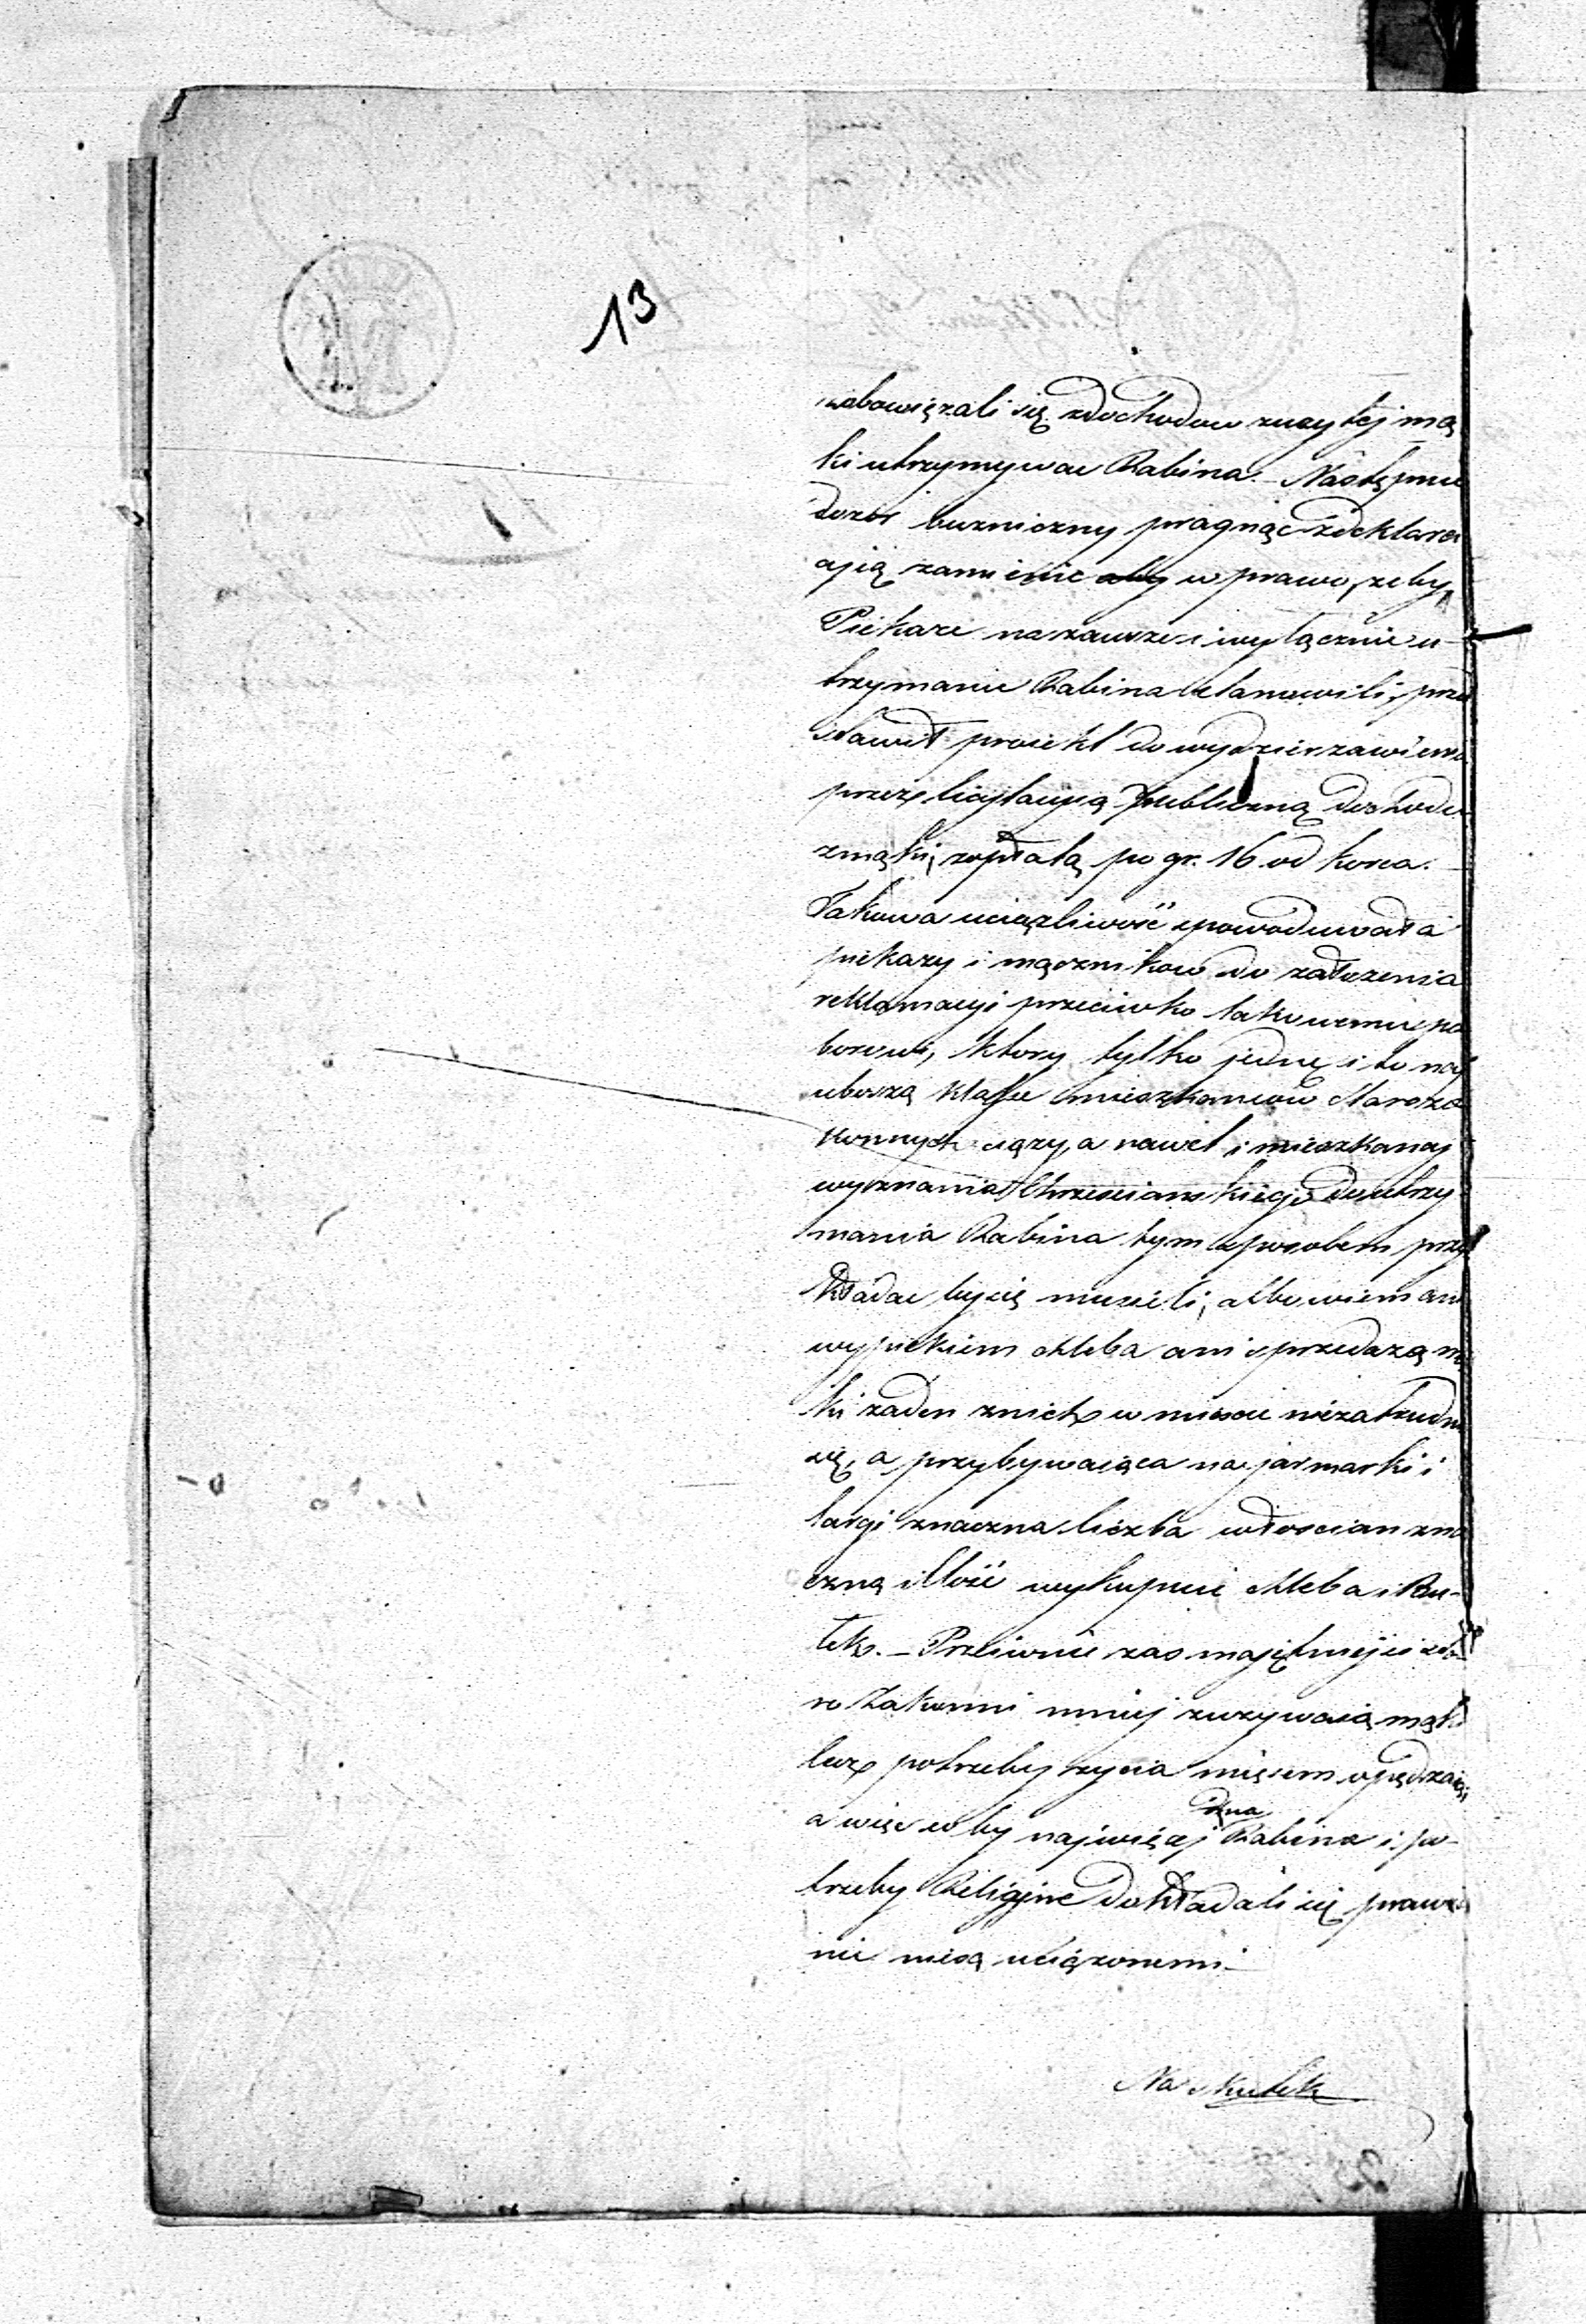 13
zobowięzali się z dochodow zuzytej mą
ki utrzymywac Rabina. – Następnie
dozor buzniczny pragnąc zdeklara
cyią zamienic aby w prawo, zeby
Piekarze na zawsze i wyłącznie u-
trzymanie Rabina stanowili, prze
stawił proiekt do wydzierzawienia
przez licytacyią publiczną dochodu
z mąki, z opłatą po gr. 16 od korca. –
Takowa uciązliwość spowodowała
piekarzy i mącznikow do założenia
reklamacyi przeciwko takowemu po
borowi, ktory tylko jednę i to nay
uboszą klassę mieszkancow Starozo
konnych ciązy, a nawet i mieszkancy
wyznania Chrzescianskiego do utrzy
mania Rabina tym sposobem przy
kładac by się musieli, albowiem ani
wypiekiem chleba ani sprzedazą mą
ki zaden znich w miescie niezatrudni
się, a przybywaiąca na jarmarki i
targi znaczna liczba włoscian zna
czną illość wykupuie chleba i Bu-
łek. – Przeciwnie zas majętniejsi sta-
ro Zakonni mniej zuzywaią mąki
lecz potrzeby zycia mięsem opędzaią,
a więc coby najwięcej na Rabina i po-
trzeby Religijne dokładali się prawie
nie niesą uciązonemi –
Na skutek